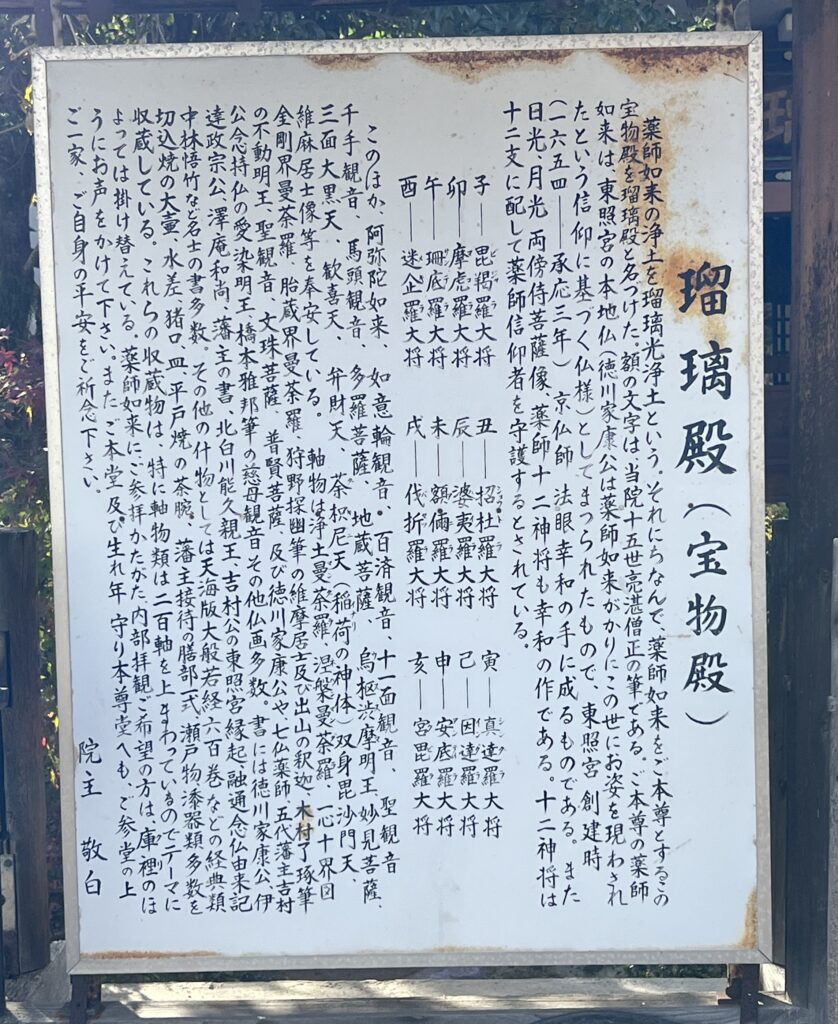 瑠璃殿（宝物殿）
薬師如来の浄土を瑠璃光浄土という。それにちなんで、薬師如来をご本尊とするこの
宝物殿を瑠璃殿と名づけた。額の文字は、当院十五世亮湛僧正の筆である。ご本尊の薬師
如来は、東照宮の本地仏（徳川家康公は薬師如来がかりにこの世にお姿を現わされ
たという信仰に基づく仏様）としてまつられたもので、東照宮創建時
（一六五四――承応三年）京仏師 法眼幸和の手に成るものである。また
日光、月光 両傍侍菩薩像、薬師十二神将も幸和の作である。十二神将は
十二支に配して薬師信仰者を守護するとされている。
子――毘羯羅大将 丑――招杜羅大将 寅――真達羅大将
卯――摩虎羅大将 辰――婆夷羅大将 巳――因達羅大将
午――珊底羅大将 未――額儞羅大将 申――安底羅大将
酉――迷企羅大将 戌――伐折羅大将 亥――宮毘羅大将
このほか、阿弥陀如来、如意輪観音、百済観音、十一面観音、聖観音
千手観音、馬頭観音、多羅菩薩、地蔵菩薩、烏枢渋摩明王、妙見菩薩、
三面大黒天、歓喜天、弁財天、荼枳尼天（稲荷の神体）双身毘沙門天、
維麻居士像等を奉安している。 軸物は浄土曼荼羅、涅槃曼荼羅、一心十界図
金剛界曼荼羅、胎蔵界曼荼羅、狩野探幽筆の維摩居士及び出山の釈迦、木村了琢筆
の不動明王、聖観音、文珠菩薩、普賢菩薩、及び徳川家康公や、七仏薬師、五代藩主吉村
公念持仏の愛染明王、橋本雅邦筆の慈母観音その他仏画多数。書には徳川家康公、伊
達政宗公、澤庵和尚、藩主の書、北白川能久親王、吉村公の東照宮縁起、融通念仏由来記
中林悟竹など名士の書多数。その他の什物としては天海版大般若経六百巻などの経典類
切込焼の大壷、水差、猪口、皿、平戸焼の茶腕、藩主接待の膳部一式、瀬戸物漆器類多数を
収蔵している。これらの収蔵物は、特に軸物類は二百軸を上まわっているのでテーマに
よっては掛け替えている。薬師如来にご参拝かたがた、内部拝観ご希望の方は、庫裡のほ
うにお声をかけて下さい。また ご本堂及び生れ年 守り本尊堂へも、ご参堂の上
ご一家、ご自身の平安をご祈念下さい。
院主 敬白